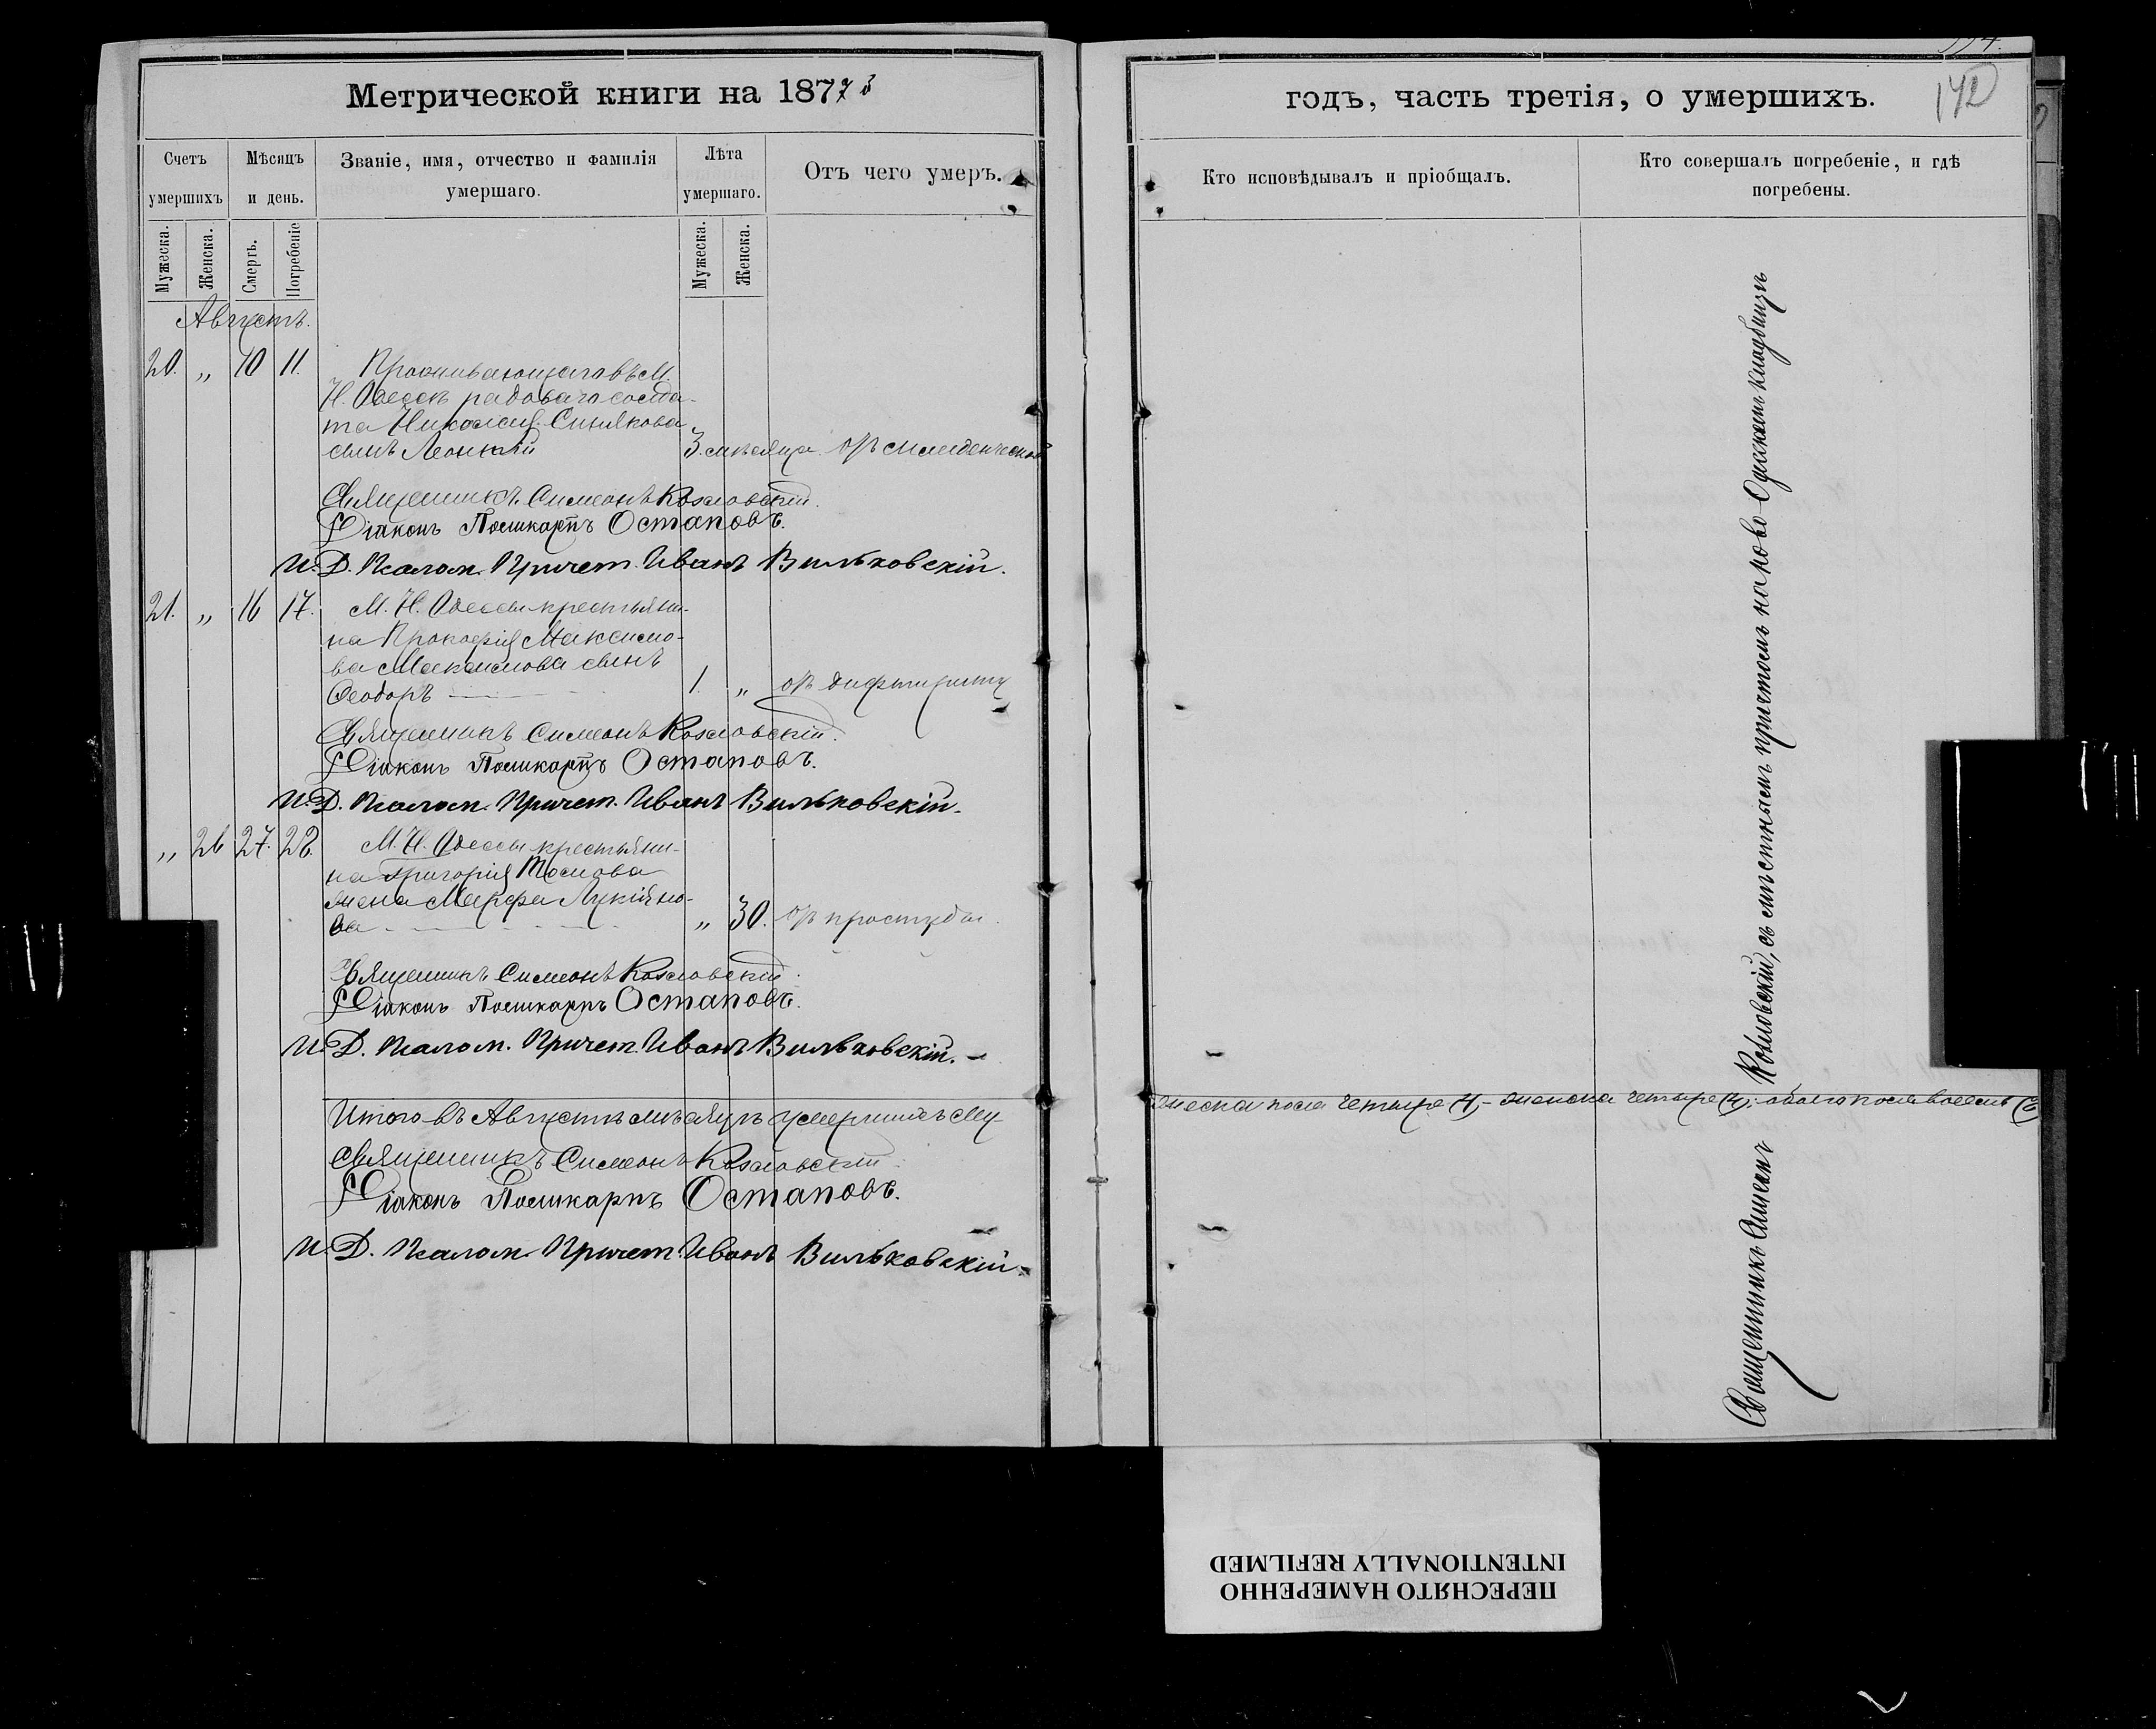 Метрической книги на 1873
Счетъ умершихъ
Мѣсяцъ и день.
Званіе, имя, отчество и фамилія умершаго.
Лѣта умершаго.
Отъ чего умеръ.
Мужеска.
Женска.
Смерть.
Погребеніе
Мужеска.
Женска.
Августъ.
20. „ 10 11. Проживающаго въ М.
Н. Одессѣ рядового солда-
та Николая Синякова
сынъ Леонтій 3. мѣсяца. отъ младенческой
Священникъ Симеонъ Козловскій.
Діаконъ Поликарпъ Остаповъ.
И. Д. Псалом. Причет. Иванъ Вильковскій.
21. „ 16 17. М. Н. Одессы крестьяни-
на Прокофія Максимо-
ва Максимова сынъ
Ѳеодоръ 1. „ отъ дифтирита
Священникъ Симеонъ Козловскій.
Діаконъ Поликарпъ Остаповъ.
И. Д. Псалом. Причет. Иванъ Вильковскій.
„ 26 27. 28. М. Н. Одессы крестьяни-
на Григорія
жена Марфа Лукіяно-
ва „ 30. отъ простуды.
Священникъ Симеонъ Козловскій.
Діаконъ Поликарпъ Остаповъ.
И. Д. Псалом. Причет. Иванъ Вильковскій.
Итого въ Августѣ мѣсяцѣ умершихъ му-
Священникъ Симеонъ Козловскій.
Діаконъ Поликарпъ Остаповъ.
И. Д. Псалом. Причет. Иванъ Вильковскій.
годъ, часть третія, о умершихъ.
142
Кто исповѣдывалъ и пріобщалъ.
Кто совершалъ погребеніе, и гдѣ погребены.
Священникъ Симеонъ Козловскій, съ мѣстнымъ причтомъ на ново-Одесскомъ кладбищѣ
жеска пола четыре (4,) - женска четыре (4); обоего пола восемь (8)
ПЕРЕСНЯТО НАМЕРЕННО
INTENTIONALLY REFILMED